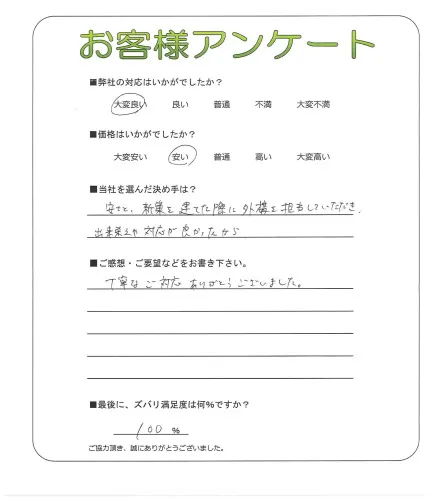 お客様アンケート
■弊社の対応はいかがでしたか？
大変良い 良い 普通 不満 大変不満
■価格はいかがでしたか？
大変安い 安い 普通 高い 大変高い
■当社を選んだ決め手は？
安さと、新築を建てた際に外構を担当していただき、
出来栄えや対応が良かったから
■ご感想・ご要望などをお書き下さい。
丁寧なご対応ありがとうございました。
■最後に、ズバリ満足度は何％ですか？
100 ％
ご協力頂き、誠にありがとうございました。